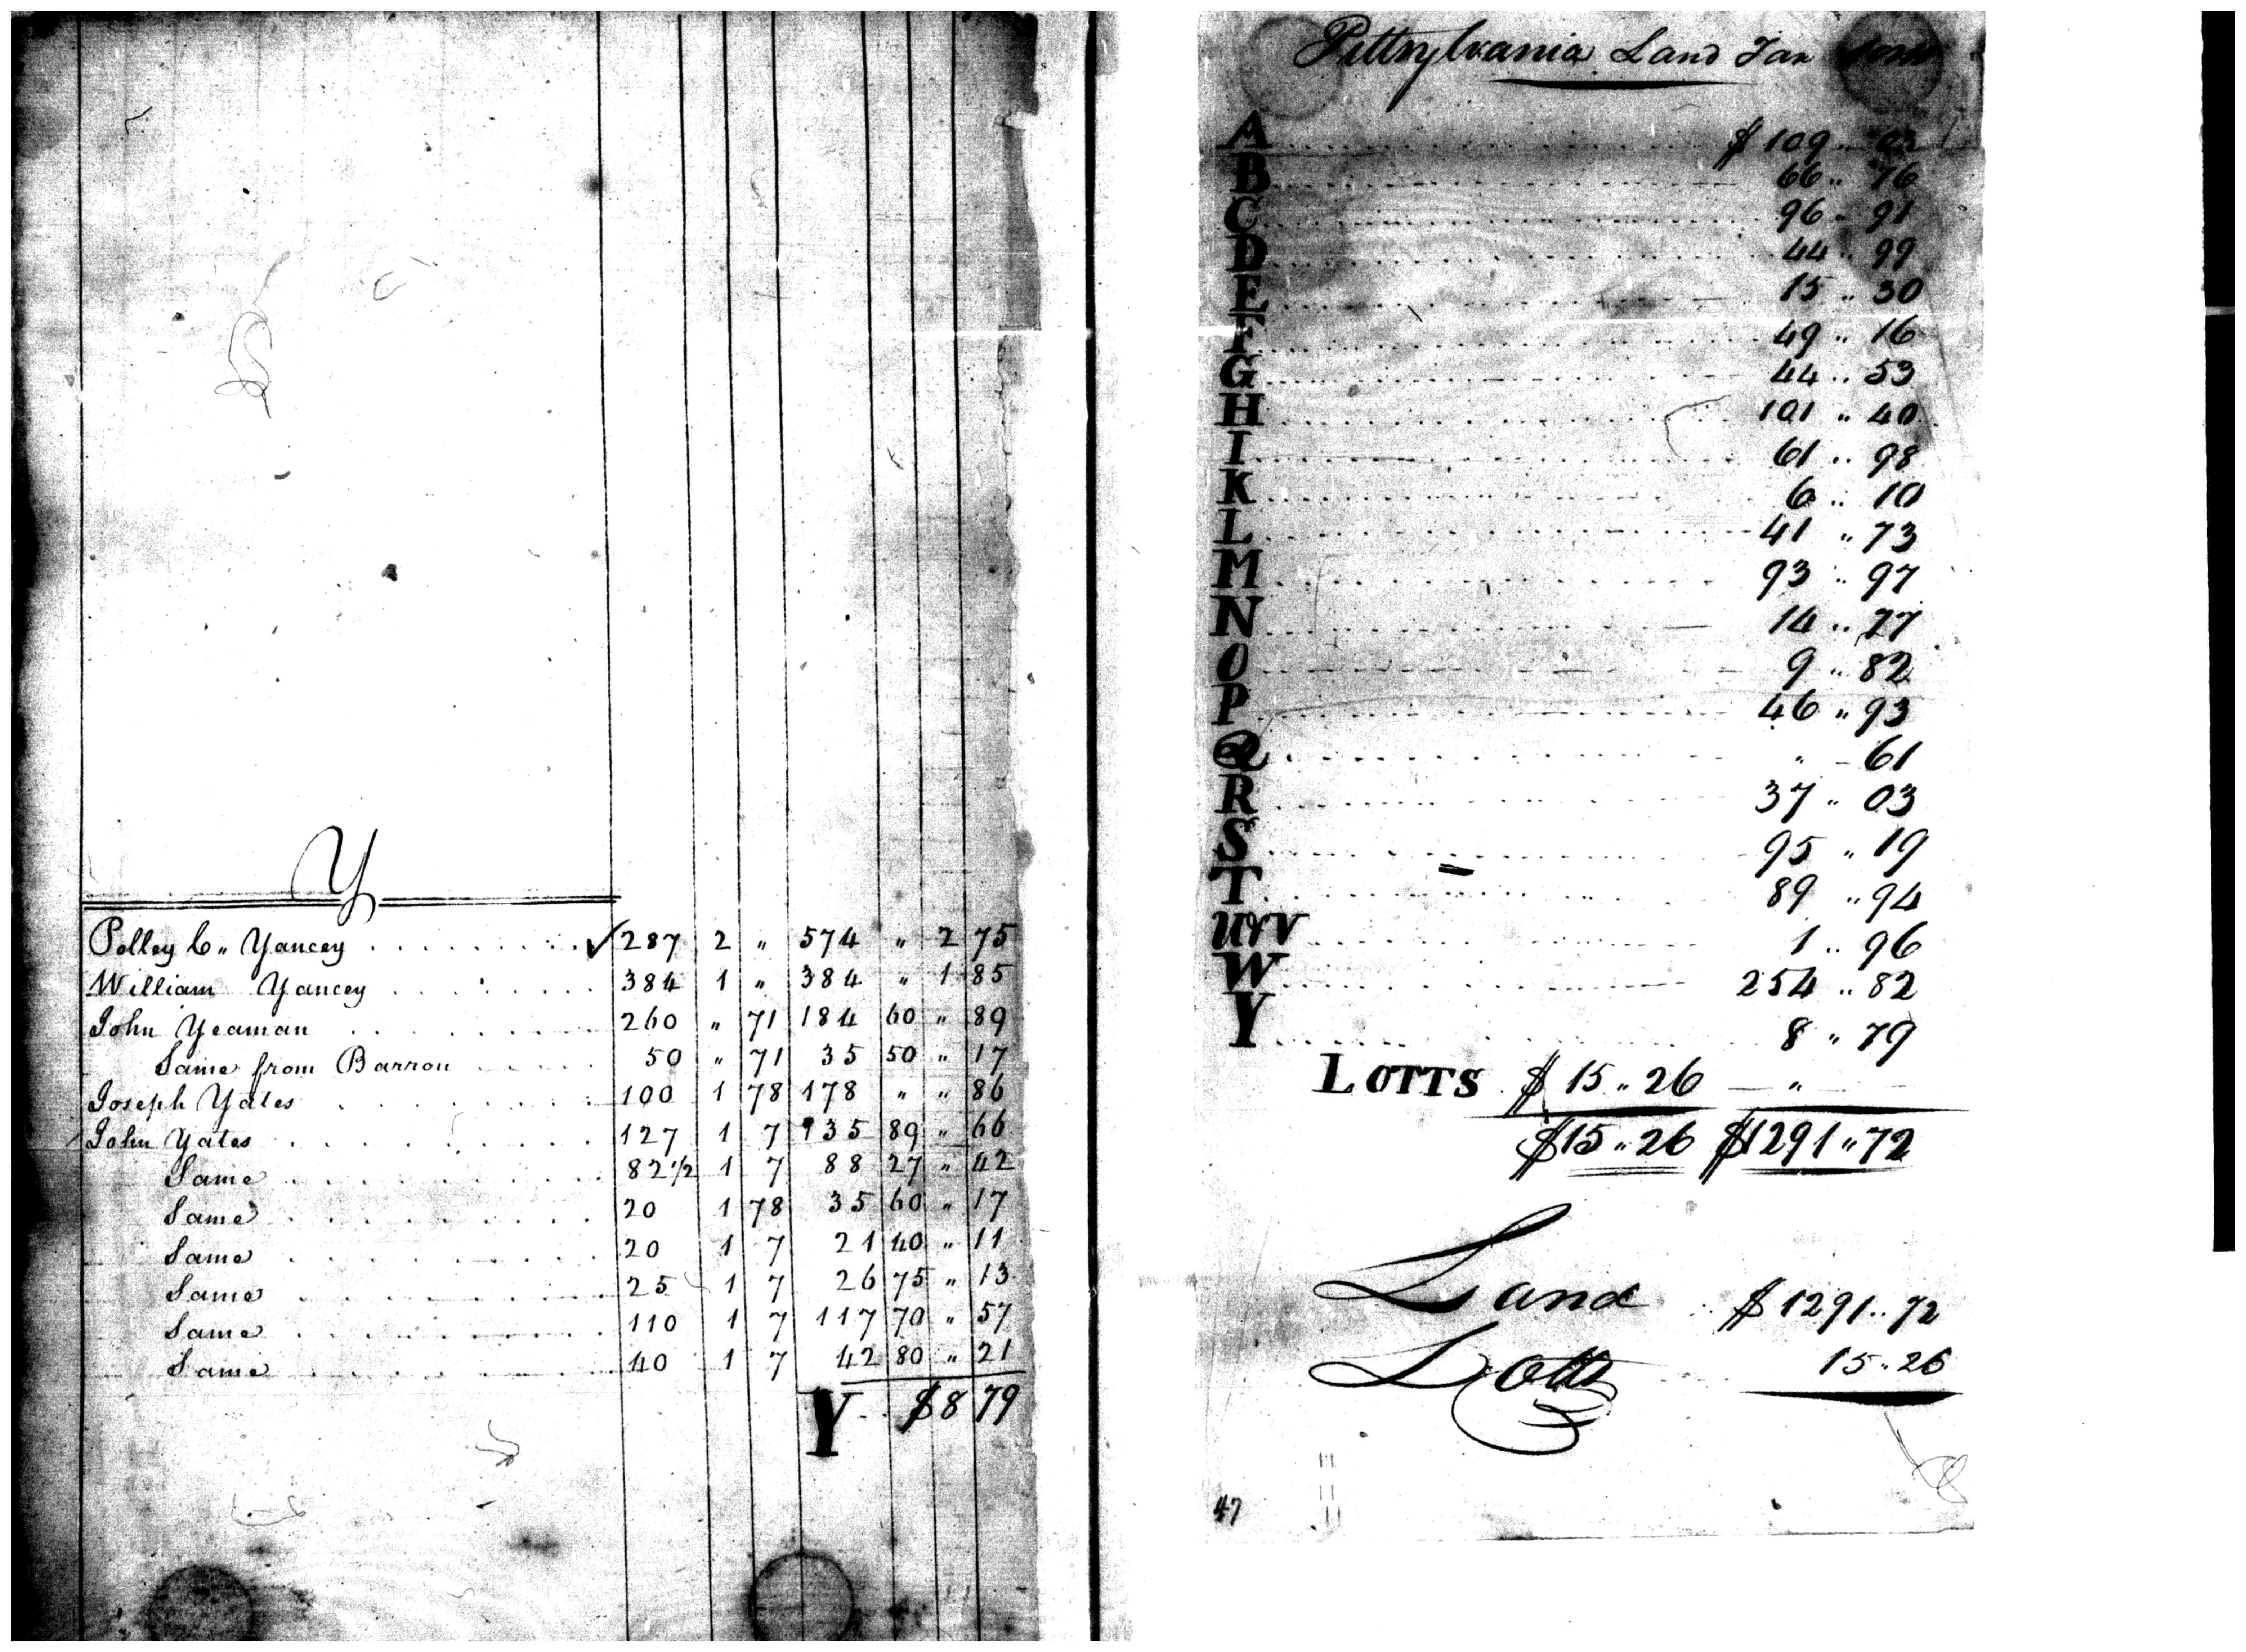 Y
Polley C.. Yancey ......... ✓ 287 2 " 574 " 2 75
William Yancey ...... 384 1 " 384 " 1 85
John Yeaman ........ 260 " 71 184 60 " 89
Same from Barron ..... 50 " 71 35 50 " 17
Joseph Yates ........ 100 1 78 178 " " 86
John Yates ......... 127 1 7 135 89 " 66
Same ......... 82½ 1 7 88 27 " 42
Same ......... 20 1 78 35 60 " 17
Same ......... 20 1 7 21 40 " 11
Same ......... 25 1 7 26 75 " 13
Same ......... 110 1 7 117 70 " 57
Same ......... 40 1 7 42 80 " 21
Y .. $8 79
Pittsylvania Land Tax
A ........ $109 .. 03
B ........ 66 .. 76
C ........ 96 .. 91
D ........ 44 .. 99
E ........ 15 .. 30
F ........ 49 .. 16
G ........ 44 .. 53
H ........ 101 .. 40
I ........ 61 .. 98
K ........ 6 .. 10
L ........ 41 .. 73
M ........ 93 .. 97
N ........ 14 .. 77
O ........ 9 .. 82
P ........ 46 .. 93
Q ........ " 61
R ........ 37 .. 03
S ........ 95 .. 19
T ........ 89 .. 94
U&V ........ 1 .. 96
W ........ 254 .. 82
Y ........ 8 .. 79
LOTTS $15..26 — "
$15..26 $1291..72
Land .. $1291..72
Lotts 15..26
47